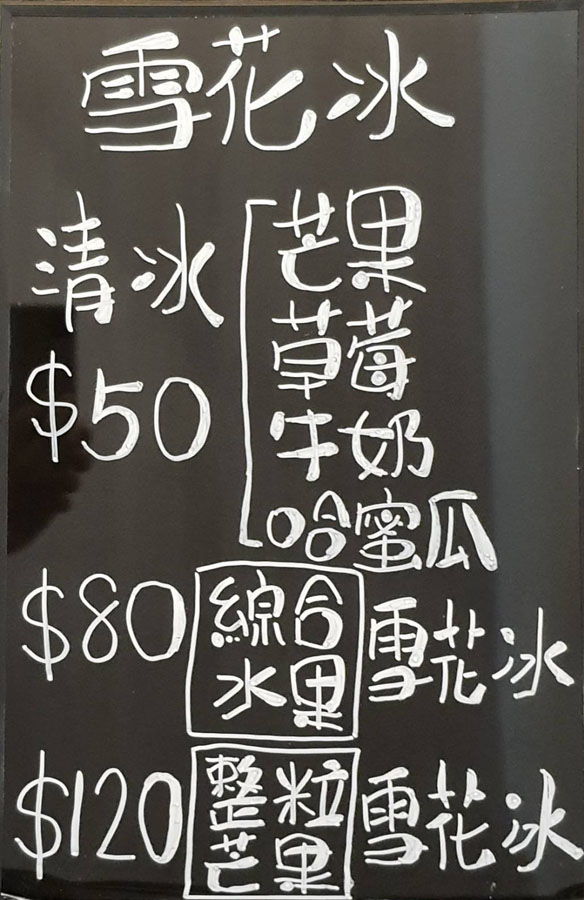 雪花冰
清冰
$50
芒果
草莓
牛奶
哈蜜瓜
$80 綜合水果 雪花冰
$120 整粒芒果 雪花冰